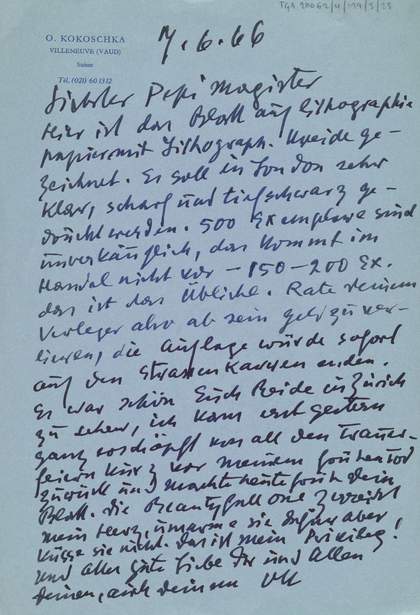 TGA 200062/4/194/3/23
O. KOKOSCHKA
VILLENEUVE (VAUD)
Suisse
Tél. (021) 60 13 12
7.6.66
Liebster Pepi Magister
Hier ist das Blatt auf Lithographie
papier mit Lithograph. Kreide ge-
zeichnet. Es soll in London sehr
klar, scharf und tiefschwarz ge-
druckt werden. 500 Exemplare sind
unverkäuflich, das kommt im
Handel nicht vor – 150–200 Ex.
das ist das Übliche. Rate deinem
Verleger also ab sein Geld zu ver-
lieren, die Auflage würde sofort
auf den Strassenkarren enden.
Es war schön Euch Beide in Zürich
zu sehen, ich kam erst gestern
ganz erschöpft von all den Trauer-
feiern kurz vor meinem
zurück und machte heute dein
Blatt. Die Beautyfull one zerreisst
mein Herz, umarme sie aber
küsse sie nicht. Das ist mein Privileg!
Und alles gute Liebe Dir und Allen
Deinen, auch deinem OK